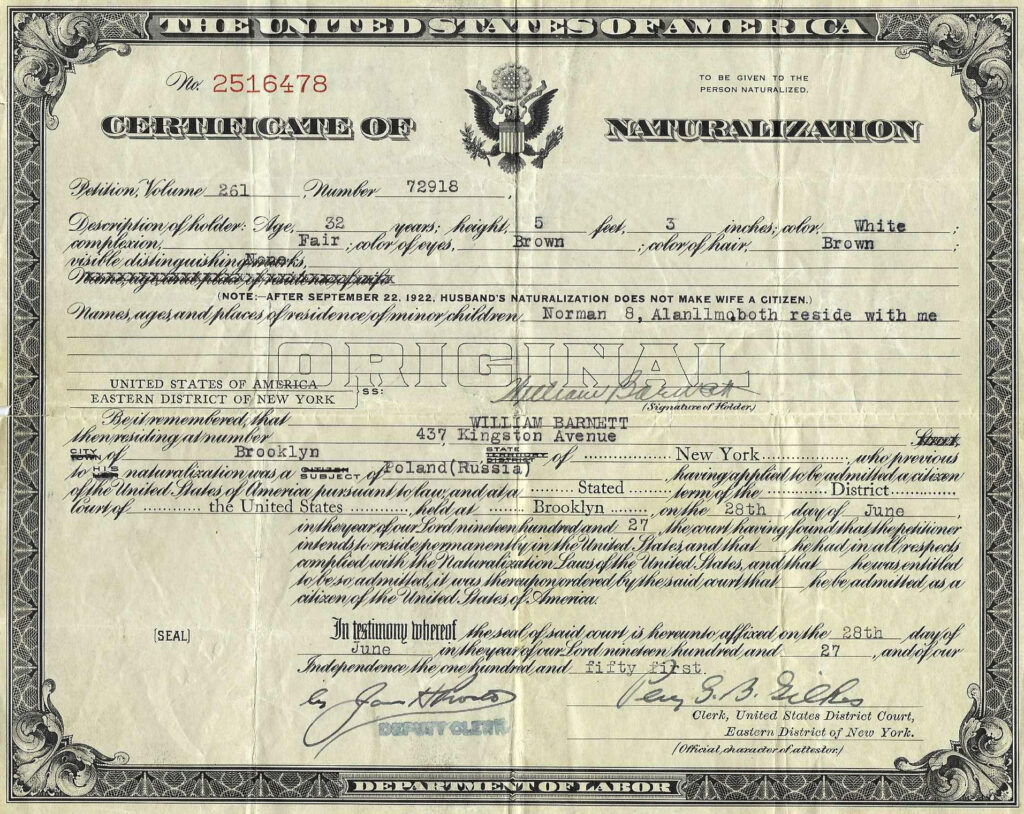 THE UNITED STATES OF AMERICA
No. 2516478
TO BE GIVEN TO THE
PERSON NATURALIZED.
CERTIFICATE OF NATURALIZATION
Petition, Volume 261, Number 72918,
Description of holder: Age, 32 years; height, 5 feet, 3 inches; color, White ;
complexion, Fair ; color of eyes, Brown ; color of hair, Brown ;
visible distinguishing marks, None
Name, age and place of residence of wife
(NOTE:—AFTER SEPTEMBER 22, 1922, HUSBAND'S NATURALIZATION DOES NOT MAKE WIFE A CITIZEN.)
Names, ages, and places of residence of minor children Norman 8, Alan11mo,both reside with me
ORIGINAL
UNITED STATES OF AMERICA
EASTERN DISTRICT OF NEW YORK
ss:
William Barnett
(Signature of Holder)
Be it remembered, that WILLIAM BARNETT
then residing at number 437 Kingston Avenue Street,
CITY TOWN of Brooklyn STATE of New York, who previous
to HIS naturalization was a CITIZEN SUBJECT of Poland(Russia), having applied to be admitted a citizen
of the United States of America pursuant to law, and at a Stated term of the District
court of the United States, held at Brooklyn, on the 28th day of June,
in the year of our Lord nineteen hundred and 27, the court having found that the petitioner
intends to reside permanently in the United States, and that he had in all respects
complied with the Naturalization Laws of the United States, and that he was entitled
to be so admitted, it was thereupon ordered by the said court that he be admitted as a
citizen of the United States of America.
[SEAL]
In testimony whereof the seal of said court is hereunto affixed on the 28th day of
June in the year of our Lord nineteen hundred and 27, and of our
Independence the one hundred and fifty first.
by
DEPUTY CLERK
Percy G. B. Gilkes
Clerk, United States District Court,
Eastern District of New York.
(Official character of attestor.)
DEPARTMENT OF LABOR